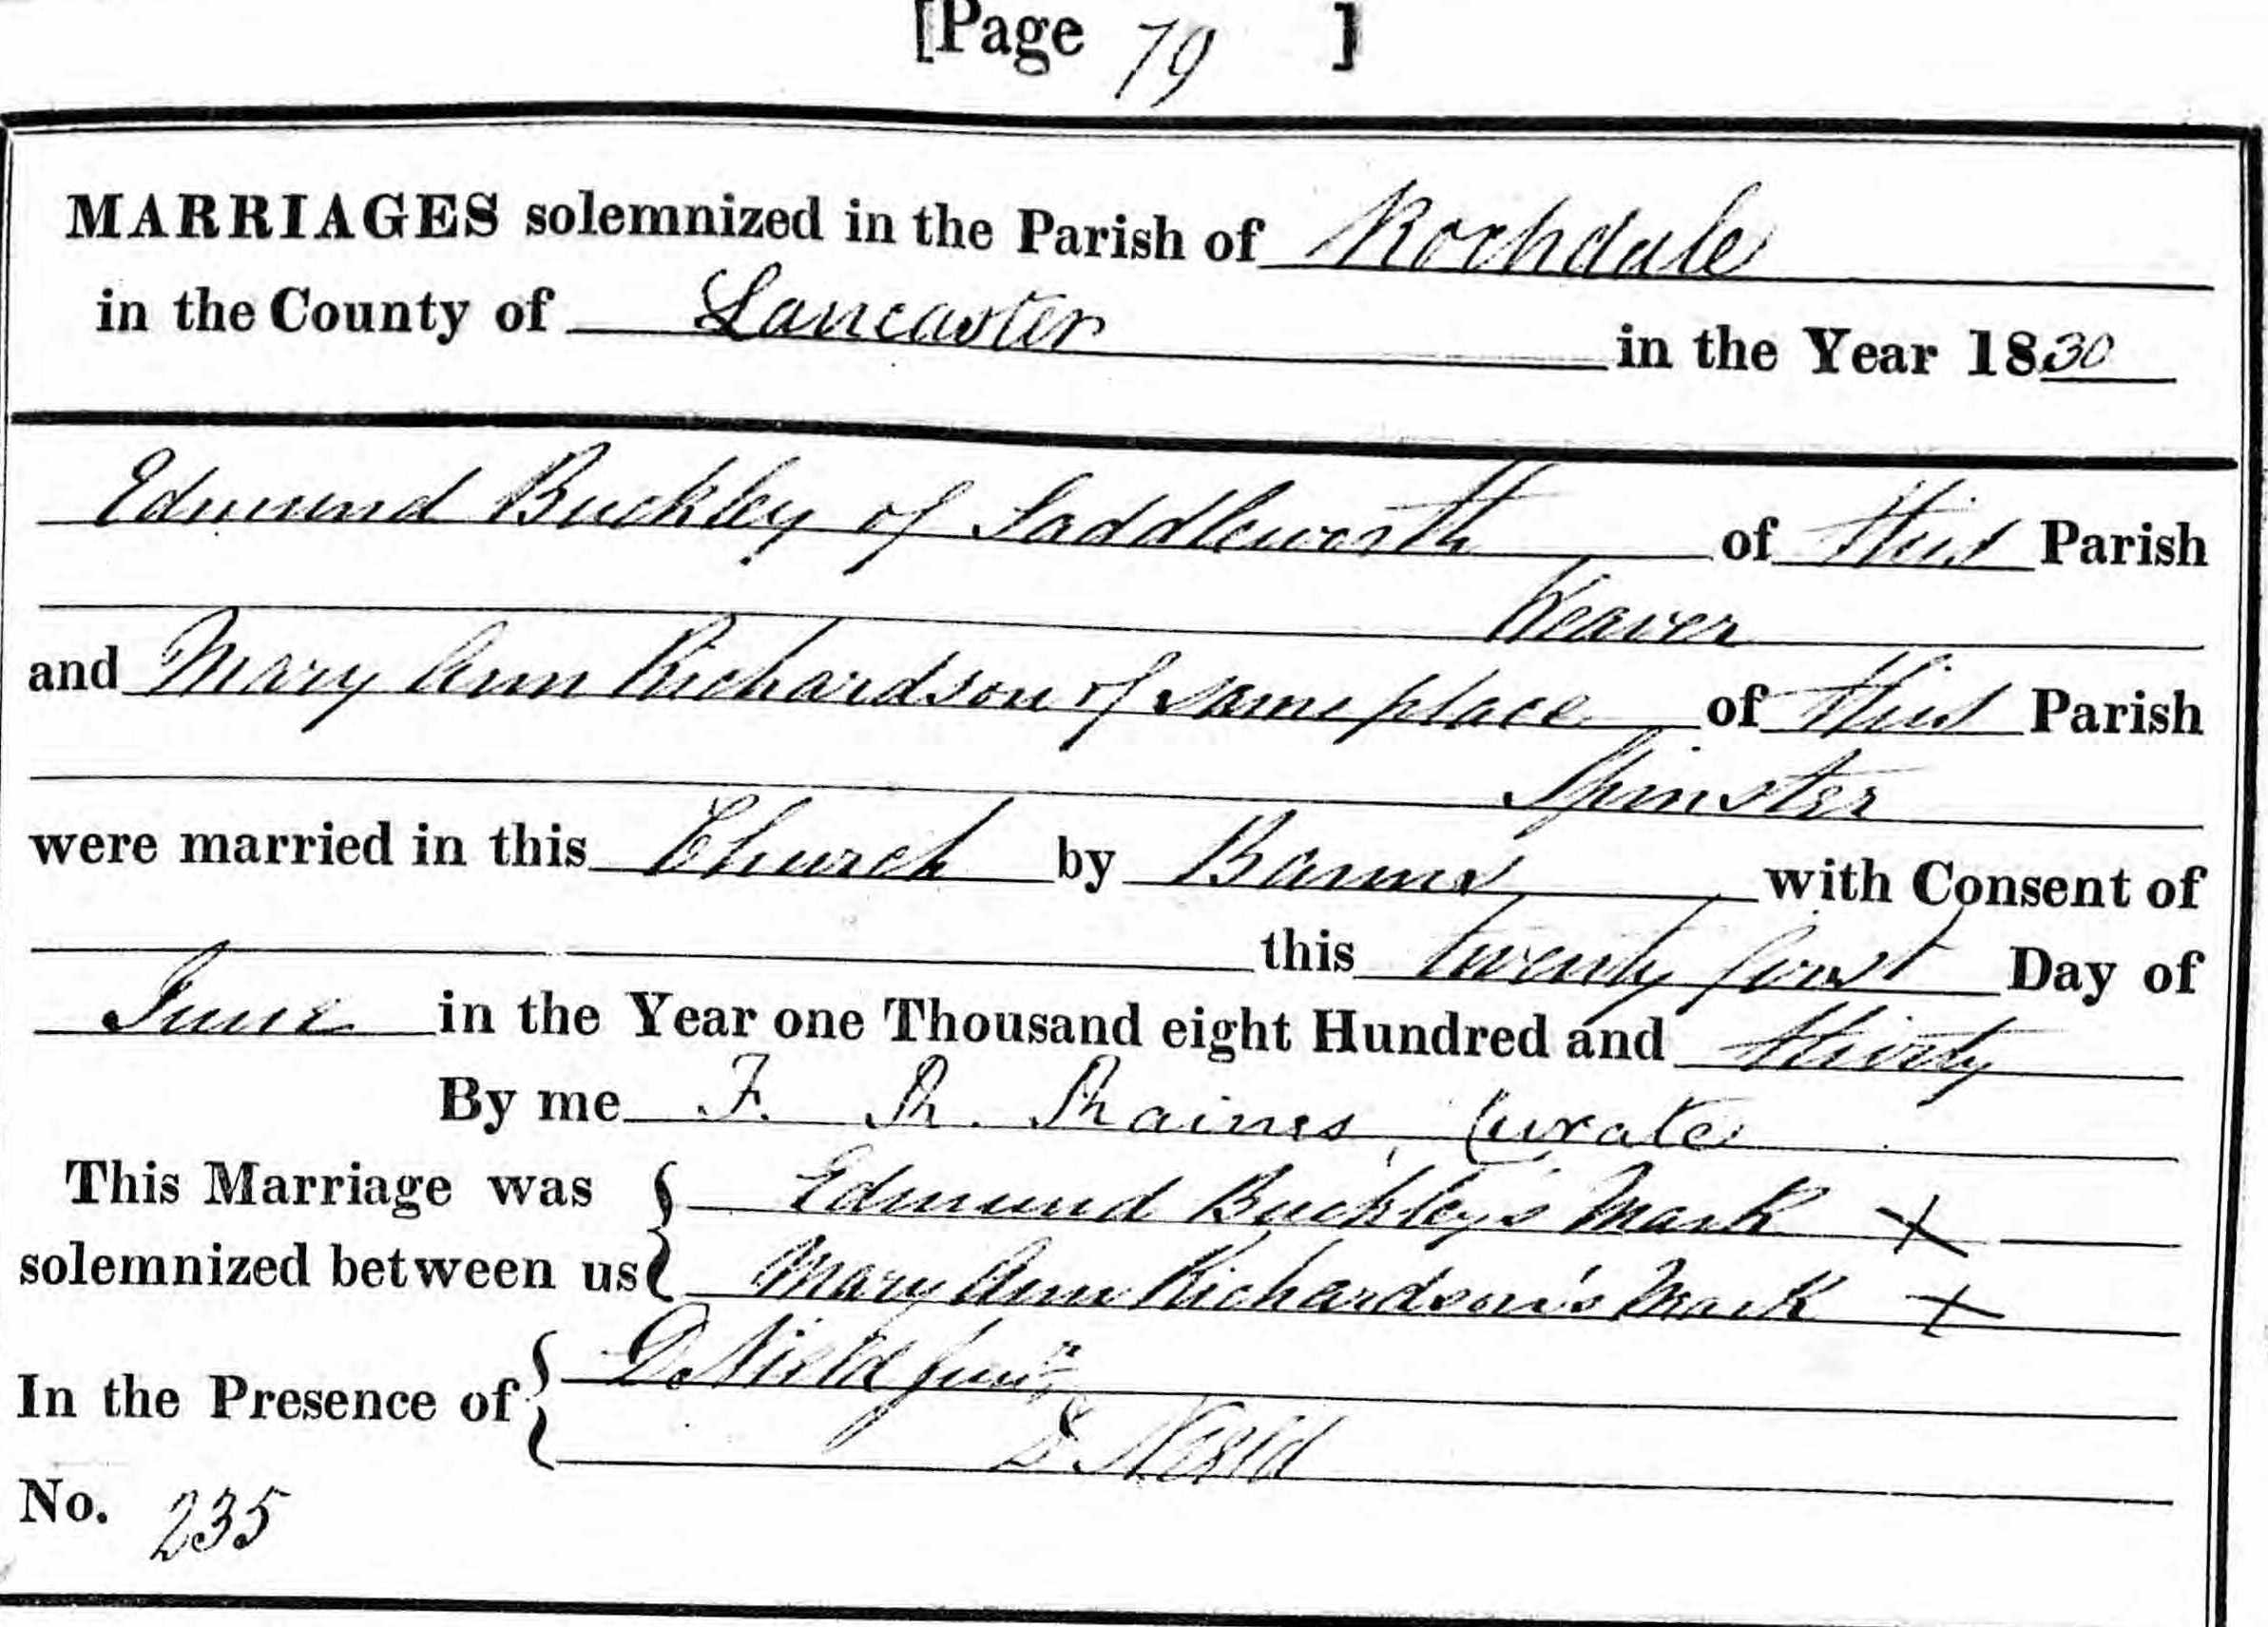 [Page 79 ]
MARRIAGES solemnized in the Parish of Rochdale
in the County of Lancaster in the Year 1830
Edmund Buckley of Saddleworth of this Parish
Weaver
and Mary Ann Richardson of same place of this Parish
Spinster
were married in this Church by Banns with Consent of
this twenty first Day of
June in the Year one Thousand eight Hundred and thirty
By me F. R. Raines, Curate
This Marriage was Edmund Buckley's Mark X
solemnized between us Mary Ann Richardson's Mark X
In the Presence of D. Nield Junr
D. Nield
No. 235